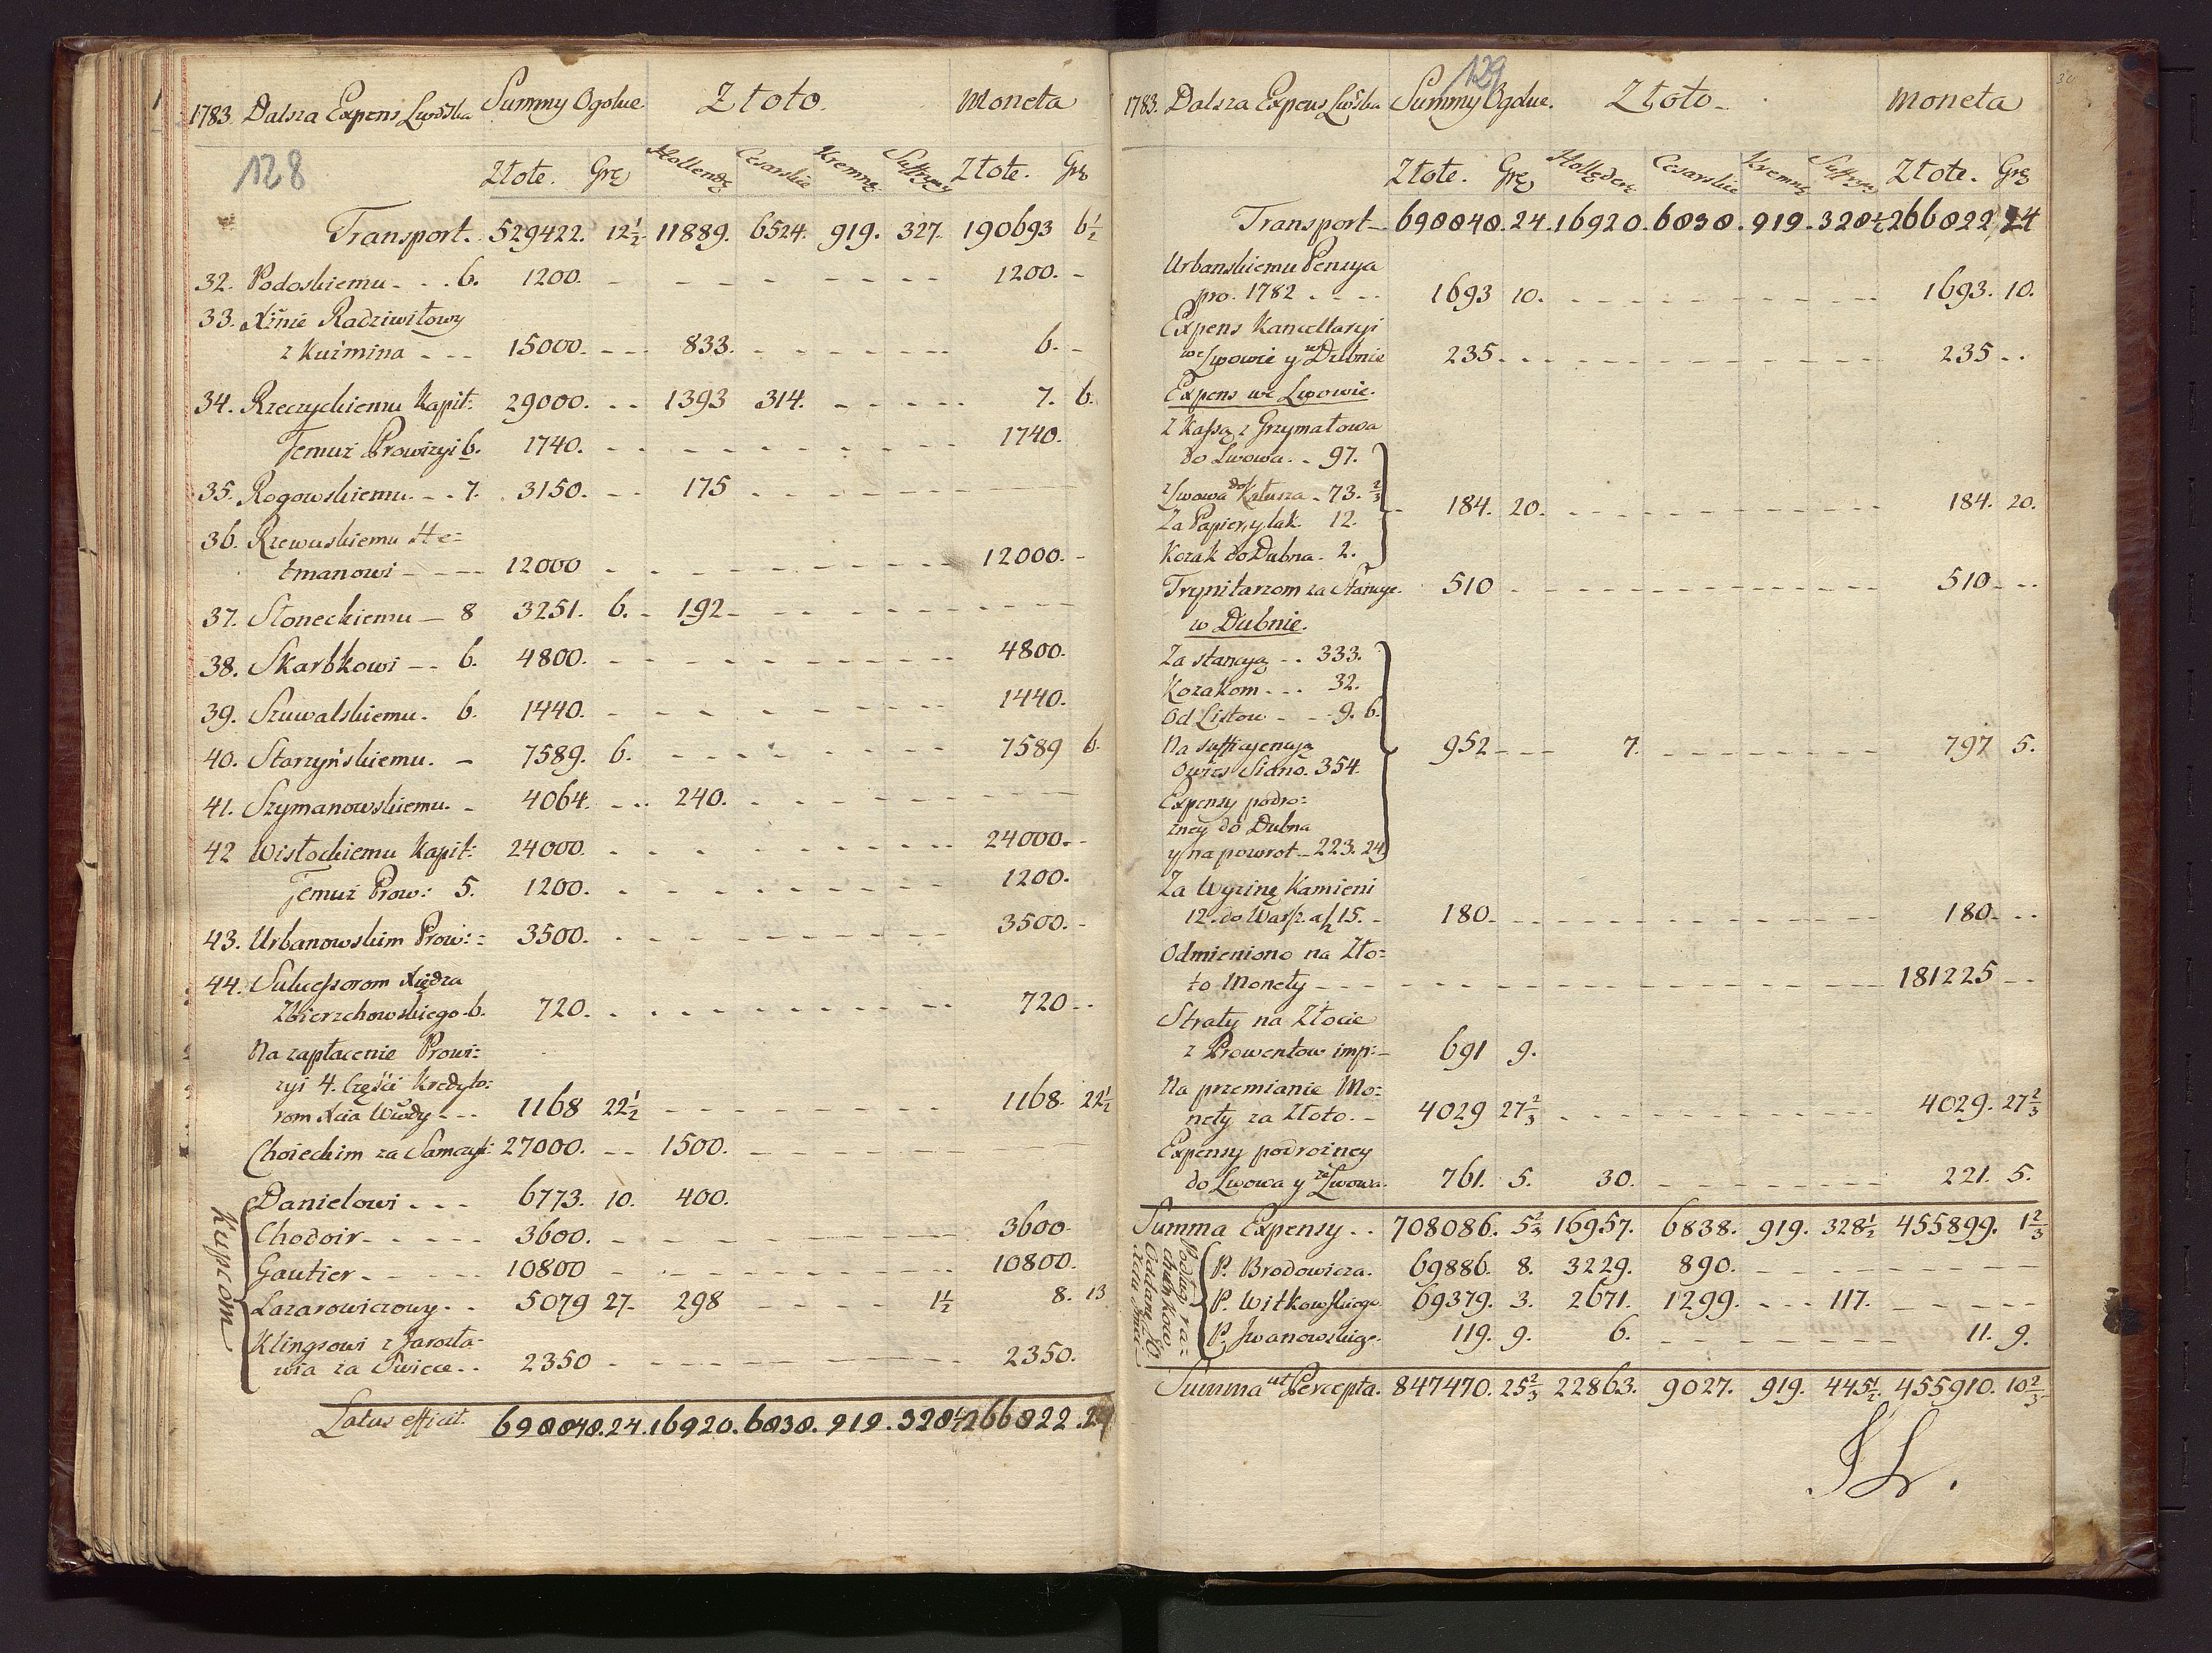 1783. Dalsza Expens Lwowska Summy Ogolne. Złoto. Moneta
128
Złote. Grę Hollendę Cesarskie Kremnę Suffryny Złote. Grę
Transport. 529422. 12½ 11889. 6524. 919. 327. 190693 6½
32. Podoskiemu - . . 6. 1200. - - - - - - - 1200. -
33. Xżnie Radziwiłowy
z Kuźmina - - - 15000. - - - 833. - - - - - - 6. -
34. Rzeczyckiemu Kapit: 29000. . . 1393 314. - - - - - 7. 6.
Temuż Prowizyi 6. 1740. - - - - - - - - 1740.
35. Rogowskiemu - - . 7. 3150. - - 175 - - - - - - -
36. Rzewuskiemu He=
tmanowi - - - - 12000 - - - - - - - - 12000. -
37. Słoneckiemu - 8 3251. 6. - 192 - - - - - - - -
38. Skarbkowi - - . 6. 4800. - - - - - - - - 4800.
39. Szuwalskiemu. 6. 1440. - - - - - - - - 1440.
40. Starzyńskiemu. - 7589. 6. - - - - - - - 7589 6.
41. Szymanowskiemu. - 4064. - . . 240. - - - - - - -
42 Wisłockiemu Kapit: 24000. - - - - - - - - 24000. -
Temuż Prow: 5. 1200. - - - - - - - - 1200.
43. Urbanowskim Prow: = 3500. - - - - - - - - 3500. -
44. Sukcessorom Xiędza
Zbierzchowskiego - 6. 720. - - - - - - - - 720 - .
Na zapłacenie Prowi=
zyi 4. Części Kredyto=
rom Xcia Wwdy - - - 1168 22½ - - - - - - - 1168. 22½
Choieckim za Samczyk: 27000. - - 1500. - - - - - - -
Kupcom
Danielowi . . . 6773. 10. 400.
Chodoir - - - - - 3600. - - - - - - - - 3600.
Gautier - - - - - 10800 - - - - - - - - 10800.
Lazarowiczowy - . 5079 27. 298 - - - - 1½ 8. 13
Klingsowi z Jarosła-
wia za Swiece . . 2350 - - - - - - - - 2350.
Latus efficit. 698848. 24. 16920. 6838. 919. 328½ 266822. 24
129
1783. Dalsza Expens Lwowska Summy Ogolne. Złoto - . Moneta
Złote. Grę Hollęders Cesarskie Kremnę Suffryny Złote. Grę
Transport - 698848. 24. 16920. 6838. 919 - 328½ 266822 24
Urbanskiemu Penzya
pro. 1782 . . . . 1693 10. - - - - - - - 1693. 10.
Expens Kancellaryi
we Lwowie y w Dubnie 235. . . - - - - - - - 235 - .
Expens we Lwowie.
Z Kassą z Grzymałowa
do Lwowa . - 97.
z Lwowa do Kałusza - 73. ⅔ 184. 20. - - - - - - - 184. 20.
Za Papier, y lak. 12.
Kozak do Dubna - 2.
Trynitarzom za Stancye. 510 - - - - - - - - 510 - . .
w Dubnie.
Za stancyą - . 333.
Kozakom . - . 32.
Od Listow - - - 9. 6.
Na 952 - - - 7. - - - - - - - 797 5.
Owies Siano. 354.
Expensy podro=
zney do Dubna
y na powrot - 223. 24
Za Wyzinę Kamieni
12. do Warsz. a ƒ 15. - 180. - - - - - - - - 180 - . .
Odmieniono na Zło=
to Monety - - - - - - - - - - - 181225 - .
Straty na Złocie
z Prowentow imp: - 691 9.
Na przemianie Mo=
nety za Złoto. - 4029 27⅔ - - - - - - - 4029. 27⅔
Expensy podrożney
do Lwowa y ze Lwowa. 761. 5. 30. - - - - - - 221. 5.
Summa Expensy . . 708086. 5⅔ 16957. 6838. 919. 328½ 455899. 1⅔
Podług ra=
chunkow
P. Brodowicza. 69886. 8. 3229. 890. - - - - - - -
P. Witkowskiego 69379. 3. 2671. 1299. - - - 117. - - - - -
P. Iwanowskiego. 119. 9. 6. - - - - - - - 11. 9.
Summa ut Percepta. 847470. 25⅔ 22863. 9027. 919. 445½ 455910. 10⅔